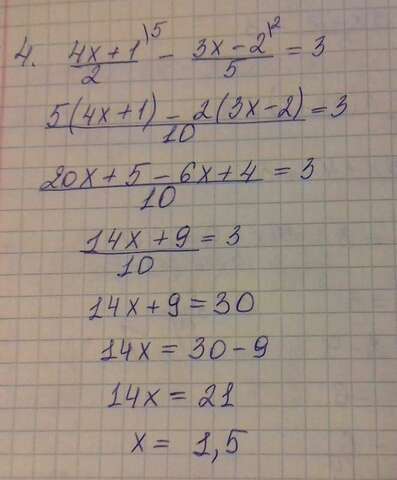 4. (4x + 1)/2 ⁾⁵ - (3x - 2)/5 ⁾² = 3
(5(4x + 1) - 2(3x - 2))/10 = 3
(20x + 5 - 6x + 4)/10 = 3
(14x + 9)/10 = 3
14x + 9 = 30
14x = 30 - 9
14x = 21
x = 1,5